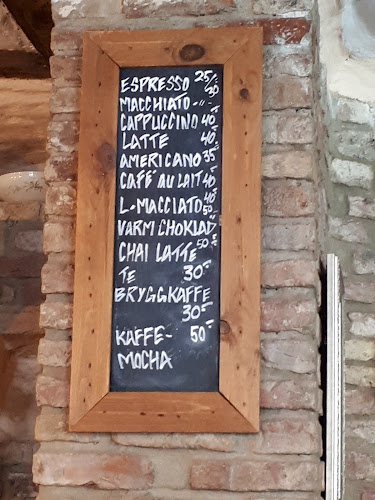 ESPRESSO 25:-
MACCHIATO -"- 30
CAPPUCCINO 40:-
LATTE 40:-
AMERICANO 35:-
CAFÉ AU LAIT 40:-
L. MACCIATO 40:-
VARM CHOKLAD 50:-
CHAI LATTE 50:-
TE 30:-
BRYGGKAFFE
30:-
KAFFE- 50:-
MOCHA